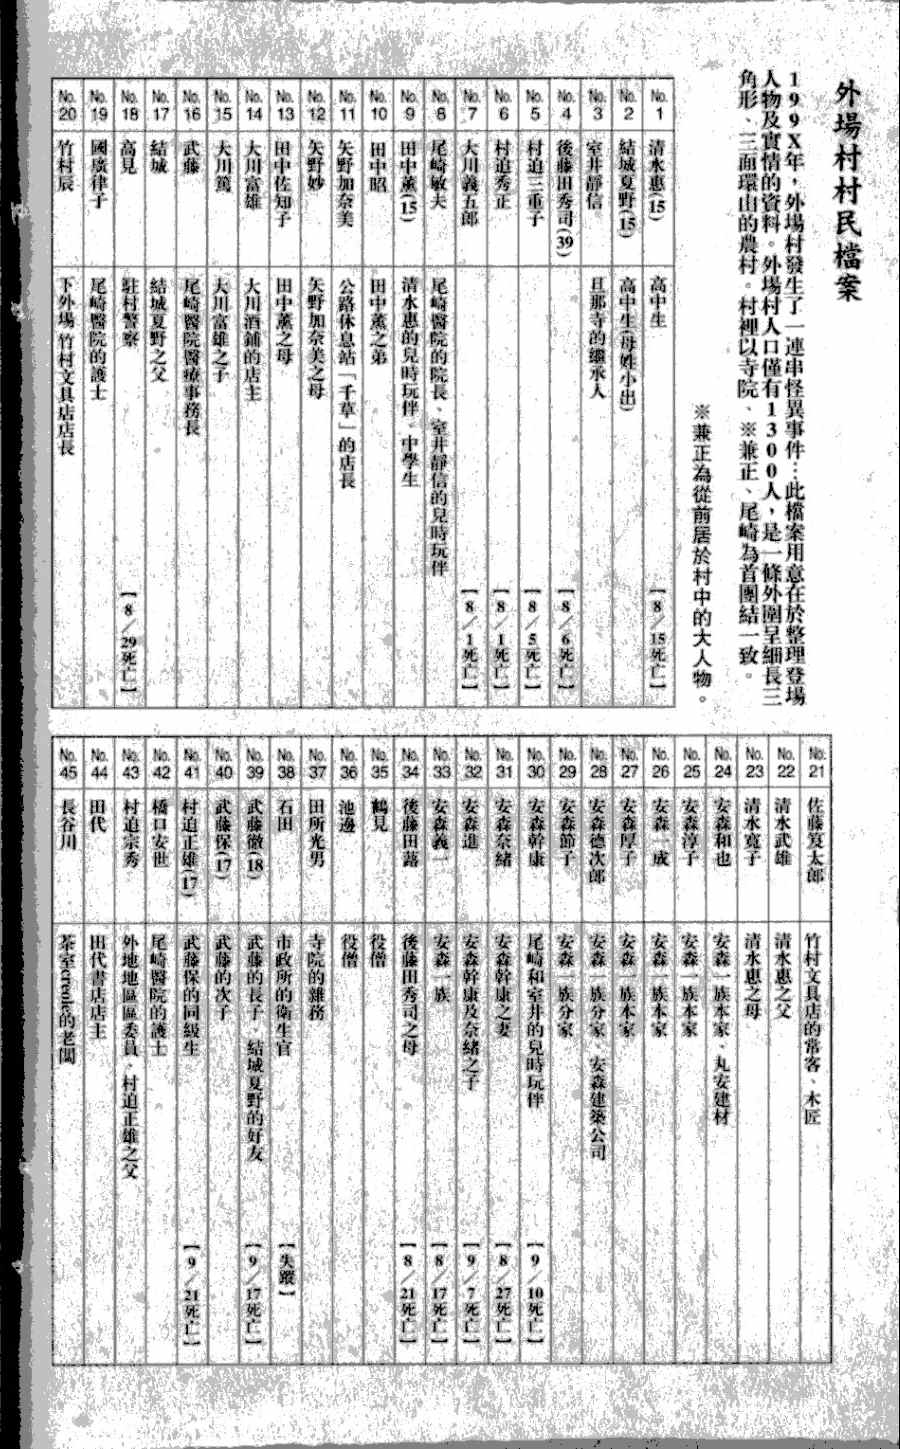 外場村村民檔案
199X年，外場村發生了一連串怪異事件…此檔案用意在於整理登場
人物及實情的資料。外場村人口僅有1300人，是一條外圍呈細長三
角形、三面環山的農村。村裡以寺院、※兼正、尾崎為首團結一致。
※兼正為從前居於村中的大人物。
No.1 清水惠(15) 高中生 【8／15死亡】
No.2 結城夏野(15) 高中生(母姓小出)
No.3 室井靜信 旦那寺的繼承人
No.4 後藤田秀司(39) 【8／6死亡】
No.5 村迫三重子 【8／5死亡】
No.6 村迫秀正 【8／1死亡】
No.7 大川義五郎 【8／1死亡】
No.8 尾崎敏夫 尾崎醫院的院長、室井靜信的兒時玩伴
No.9 田中薰(15) 清水惠的兒時玩伴、中學生
No.10 田中昭 田中薰之弟
No.11 矢野加奈美 公路休息站「千草」的店長
No.12 矢野妙 矢野加奈美之母
No.13 田中佐知子 田中薰之母
No.14 大川富雄 大川酒鋪的店主
No.15 大川篤 大川富雄之子
No.16 武藤 尾崎醫院醫療事務長
No.17 結城 結城夏野之父
No.18 高見 駐村警察 【8／29死亡】
No.19 國廣律子 尾崎醫院的護士
No.20 竹村辰 下外場 竹村文具店店長
No.21 佐藤笈太郎 竹村文具店的常客、木匠
No.22 清水武雄 清水惠之父
No.23 清水寬子 清水惠之母
No.24 安森和也 安森一族本家、丸安建材
No.25 安森淳子 安森一族本家
No.26 安森一成 安森一族本家
No.27 安森厚子 安森一族本家
No.28 安森德次郎 安森一族分家、安森建築公司
No.29 安森節子 安森一族分家
No.30 安森幹康 尾崎和室井的兒時玩伴 【9／10死亡】
No.31 安森奈緒 安森幹康之妻 【8／27死亡】
No.32 安森進 安森幹康及奈緒之子 【9／7死亡】
No.33 安森義一 安森一族 【8／17死亡】
No.34 後藤田蕗 後藤田秀司之母 【8／21死亡】
No.35 鶴見 役僧
No.36 池邊 役僧
No.37 田所光男 寺院的雜務
No.38 石田 市政所的衛生官 【失蹤】
No.39 武藤徹(18) 武藤的長子、結城夏野的好友 【9／17死亡】
No.40 武藤保(17) 武藤的次子
No.41 村迫正雄(17) 武藤保的同級生 【9／21死亡】
No.42 橋口安世 尾崎醫院的護士
No.43 村迫宗秀 外地地區區委員、村迫正雄之父
No.44 田代 田代書店店主
No.45 長谷川 茶室creole的老闆